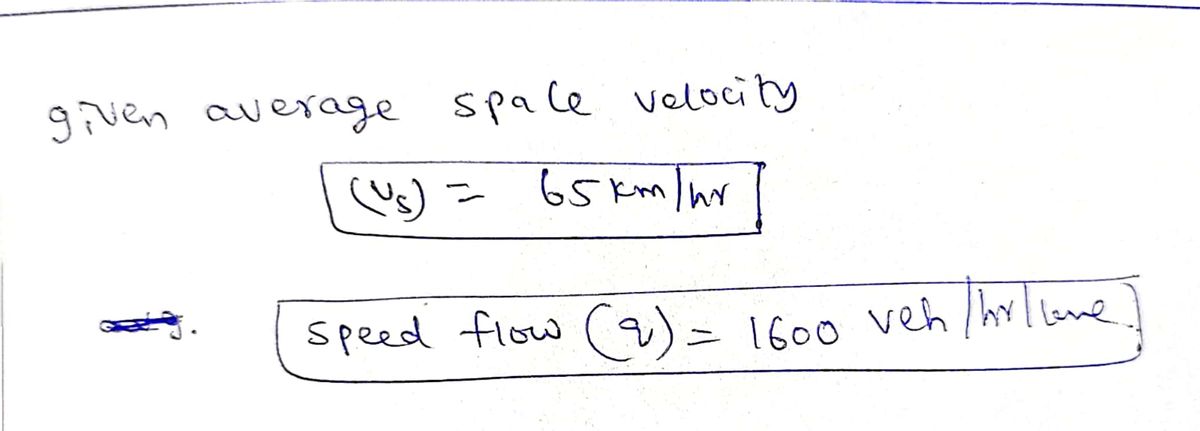 given average space velocity
(Vs) = 65 km/hr
speed flow (q) = 1600 veh/hr/lane